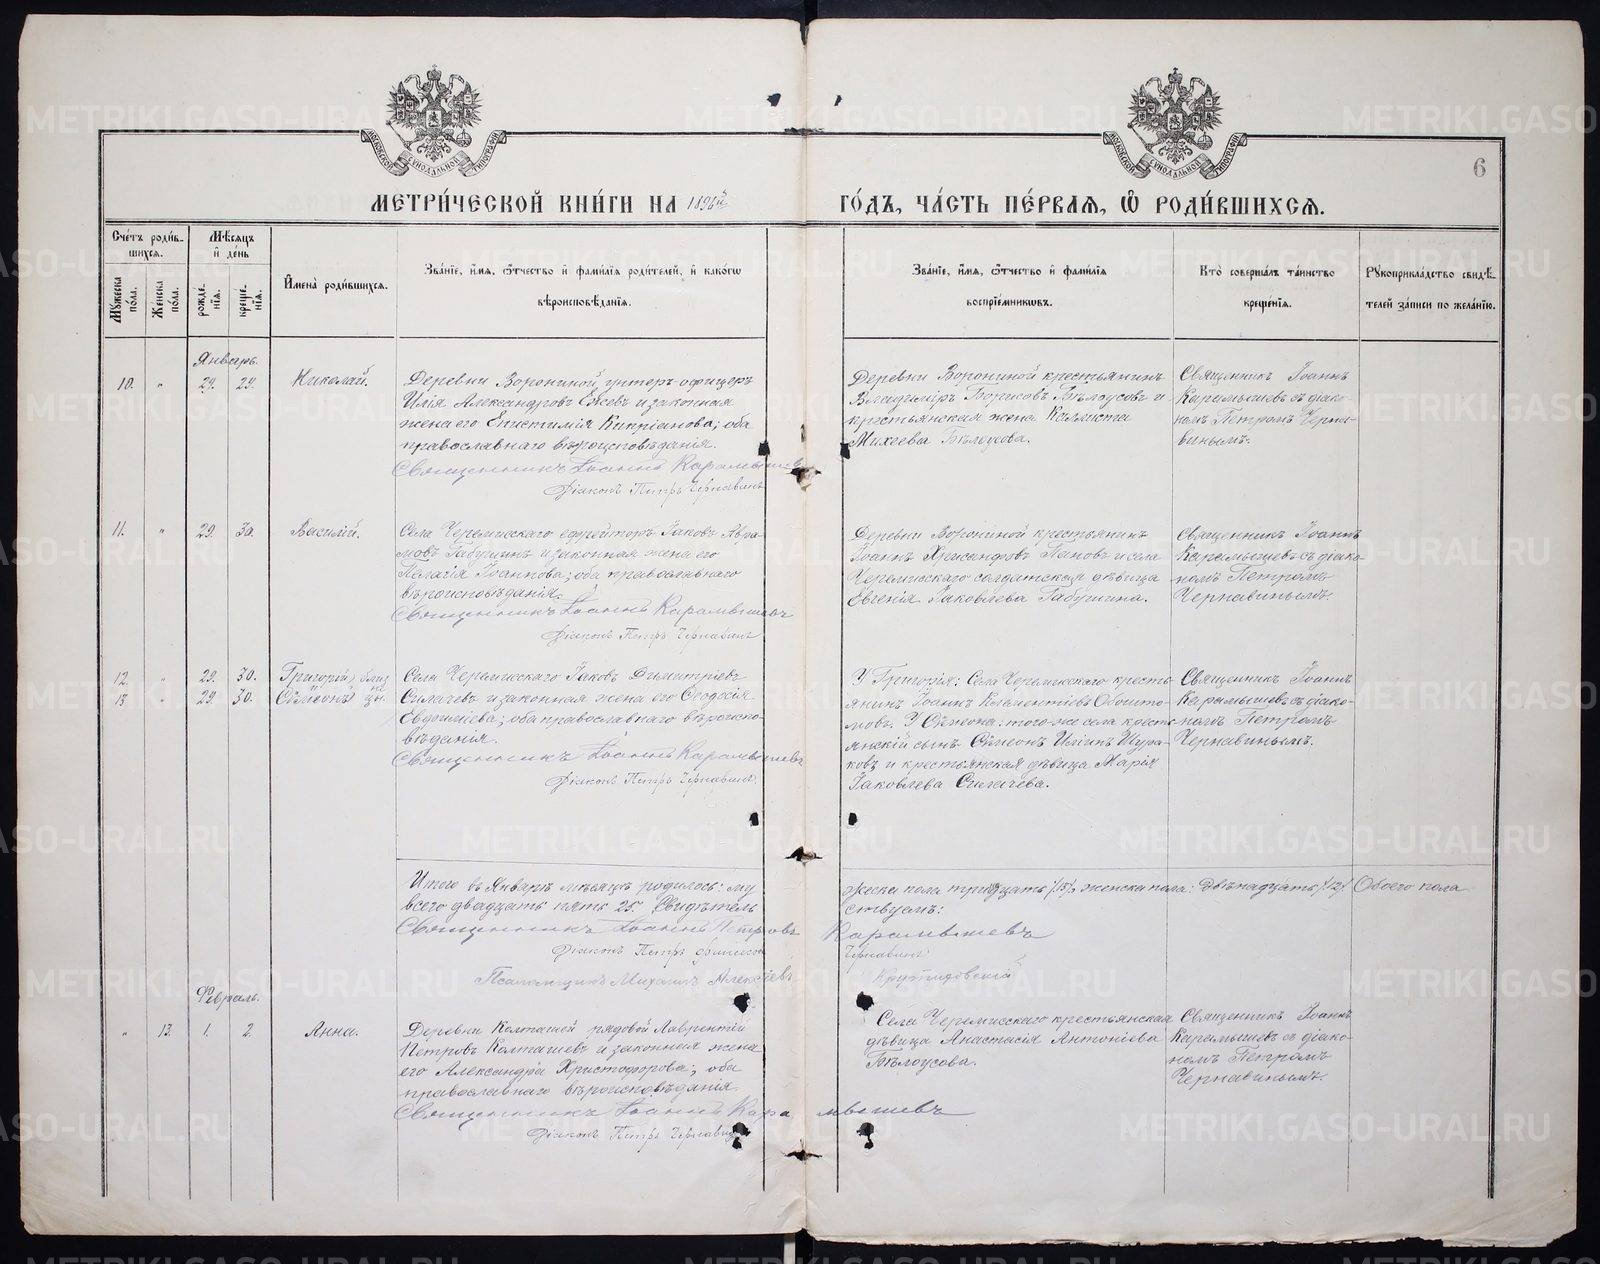 6
МЕТРИ́ЧЕСКОЙ КНИ́ГИ НА 1896й ГО́ДЪ, ЧА́СТЬ ПЕ́РВАЯ, Ѿ РОДИ́ВШИХСЯ.
Сче́тъ роди́в-
шихся.
Мѣ́сяцъ
и҆ де́нь
Мꙋ́жеска
по́ла.
Же́нска
по́ла.
рожде́-
нїя.
креще́-
нїя.
И҆мена̀ роди́вшихся.
Зва́нїе, и҆́мя, ѻ҆́тчество и҆ фами́лїѧ роди́телей, и҆ како́гѡ
вѣроисповѣ́данїѧ.
Зва́нїе, и҆́мя, ѻ҆́тчество и҆ фами́лїѧ
воспрїе́мникѡвъ.
Кто̀ соверша́лъ та́инство
креще́нїѧ.
Рꙋкоприкла́дство свидѣ́-
телей за́писи по жела́нїю.
Январь.
10. " 29. 29. Николай.
Деревни Ворониной, унтеръ офицеръ
Илія Александровъ Ежевъ и законная
жена его Епистимія Кипріанова; оба
православнаго вѣроисповѣданія.
Священникъ Іоаннъ Карамышевъ
Діаконъ Петръ Чернавинъ
Деревни Ворониной крестьянинъ
Владиміръ Борисовъ Бѣлоусовъ и
крестьянская жена Каллиста
Михеева Бѣлоусова.
Священникъ Іоаннъ
Карамышевъ съ діако-
номъ Петромъ Черна-
винымъ.
11. " 29. 30. Василій.
Села Черемисскаго ефрейторъ Іаковъ Авра-
мовъ Габушинъ и законная жена его
Пелагія Іоаннова; оба православнаго
вѣроисповѣданія.
Священникъ Іоаннъ Карамышевъ
Діаконъ Петръ Чернавинъ
Деревни Ворониной крестьянинъ
Іоаннъ Хрисанфовъ Пановъ и села
Черемисскаго солдатская дѣвица
Евгенія Іаковлева Габушина.
Священникъ Іоаннъ
Карамышевъ съ діако-
номъ Петромъ
Чернавинымъ.
12. " 29. 30. Григорій близ
13 " 29. 30. Сѵмеонъ цы.
Села Черемисскаго Іаковъ Димитріевъ
Силачевъ и законная жена его Ѳеодосія
Евдокимова; оба православнаго вѣроиспо-
вѣданія.
Священникъ Іоаннъ Карамышевъ
Діаконъ Петръ Чернавинъ.
У Григорія: Села Черемисскаго кресть-
янинъ Іоаннъ Климентіевъ
мовъ. У Сѵмеона: того-же села кресть
янскій сынъ Сѵмеонъ Иліинъ Шура-
ковъ и крестьянская дѣвица Марія
Іаковлева Силачева.
Священникъ Іоаннъ
Карамышевъ съ діако-
номъ Петромъ
Чернавинымъ.
Итого въ Январѣ мѣсяцѣ родилось: му
жеска пола тринадцать /13/, женска пола: двѣнадцать /12/ Обоего пола
всего двадцать пять 25. Свидѣтель
ствуемъ:
Священникъ Іоаннъ Петровъ Карамышевъ
Діаконъ Петръ Чернавинъ
Псаломщикъ Михаилъ Алексіевъ
Февраль.
" 13. 1. 2. Анна.
Деревни Колташей рядовой Лаврентій
Петровъ Колташевъ и законная жена
его Александра Христофорова; оба
православнаго вѣроисповѣданія.
Священникъ Іоаннъ Карамышевъ
Діаконъ Петръ Чернавинъ
Села Черемисскаго крестьянская
дѣвица Анастасія Антоніева
Бѣлоусова.
Священникъ Іоаннъ
Карамышевъ съ діако-
номъ Петромъ
Чернавинымъ.